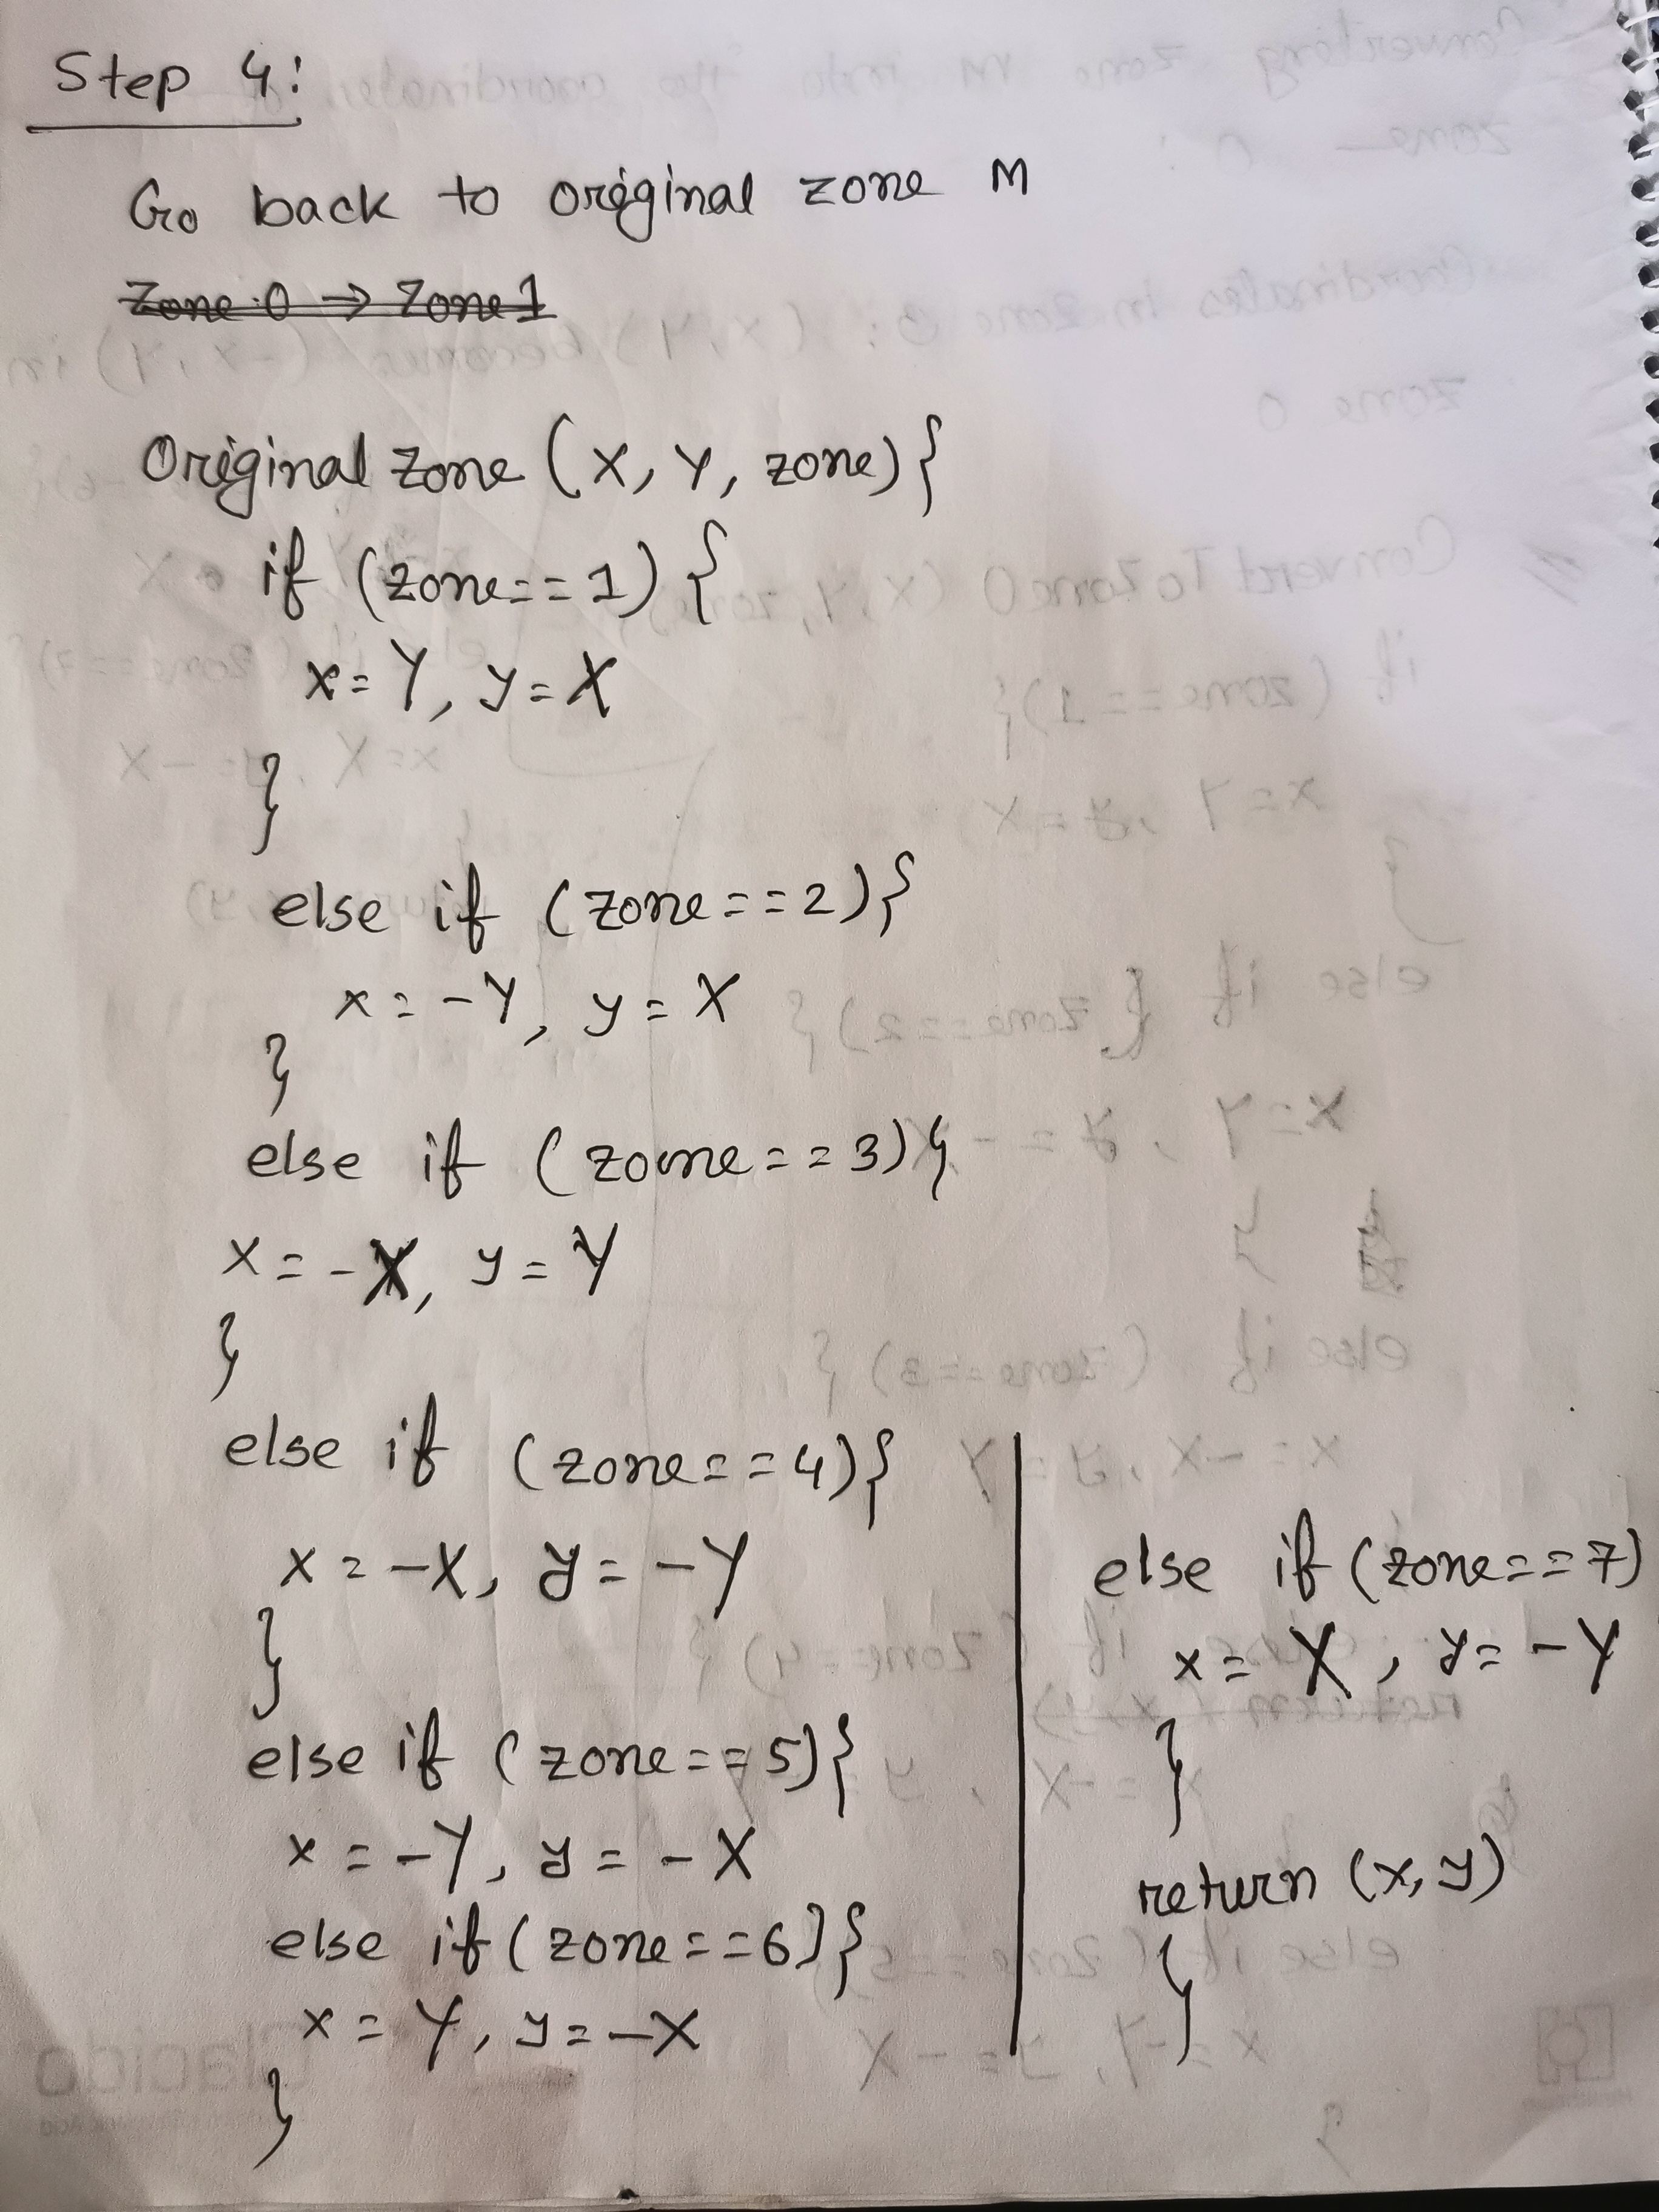 Step 4:
Go back to original zone M
Zone 0 → Zone 1
Original Zone (X, Y, zone) {
if (zone == 1) {
x = Y, y = X
}
else if (zone == 2) {
x = -Y, y = X
}
else if (zone == 3) {
x = -X, y = Y
}
else if (zone == 4) {
x = -X, y = -Y
}
else if (zone == 5) {
x = -Y, y = -X
else if (zone == 6) {
x = Y, y = -X
}
else if (zone == 7)
x = X, y = -Y
}
return (x, y)
}